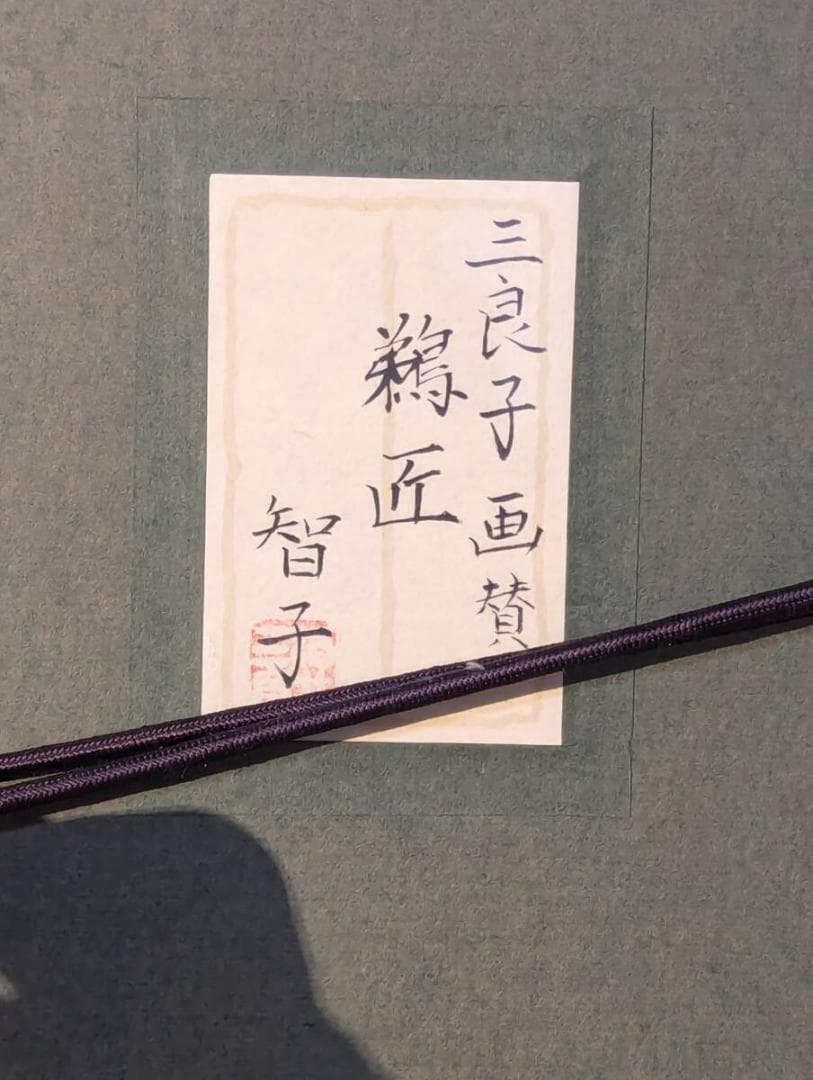 三良子画賛
鵜匠
智子